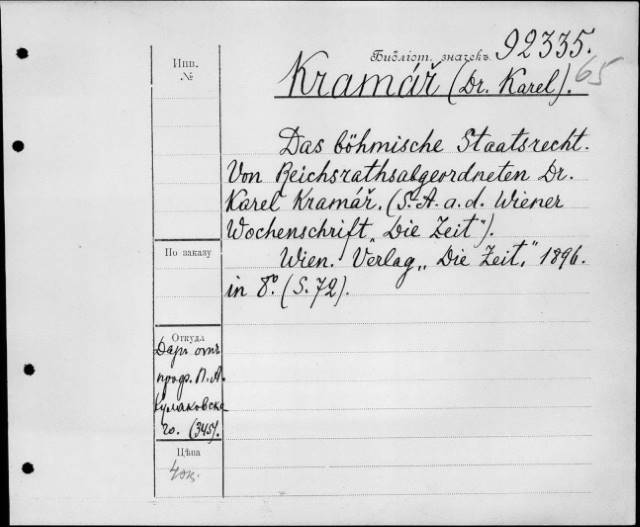 Библіот. значекъ 92335.
65
Kramář (Dr. Karel).
Инв.
№
Das böhmische Staatsrecht.
Von Reichsrathsabgeordneten Dr.
Karel Kramář. (S.-A. a. d. Wiener
Wochenschrift „Die Zeit“).
Wien. Verlag „Die Zeit,“ 1896.
in 8.° (S. 72).
По заказу
Откуда
Даръ отъ
проф. П. А.
Кулаковска-
го. (345).
Цѣна